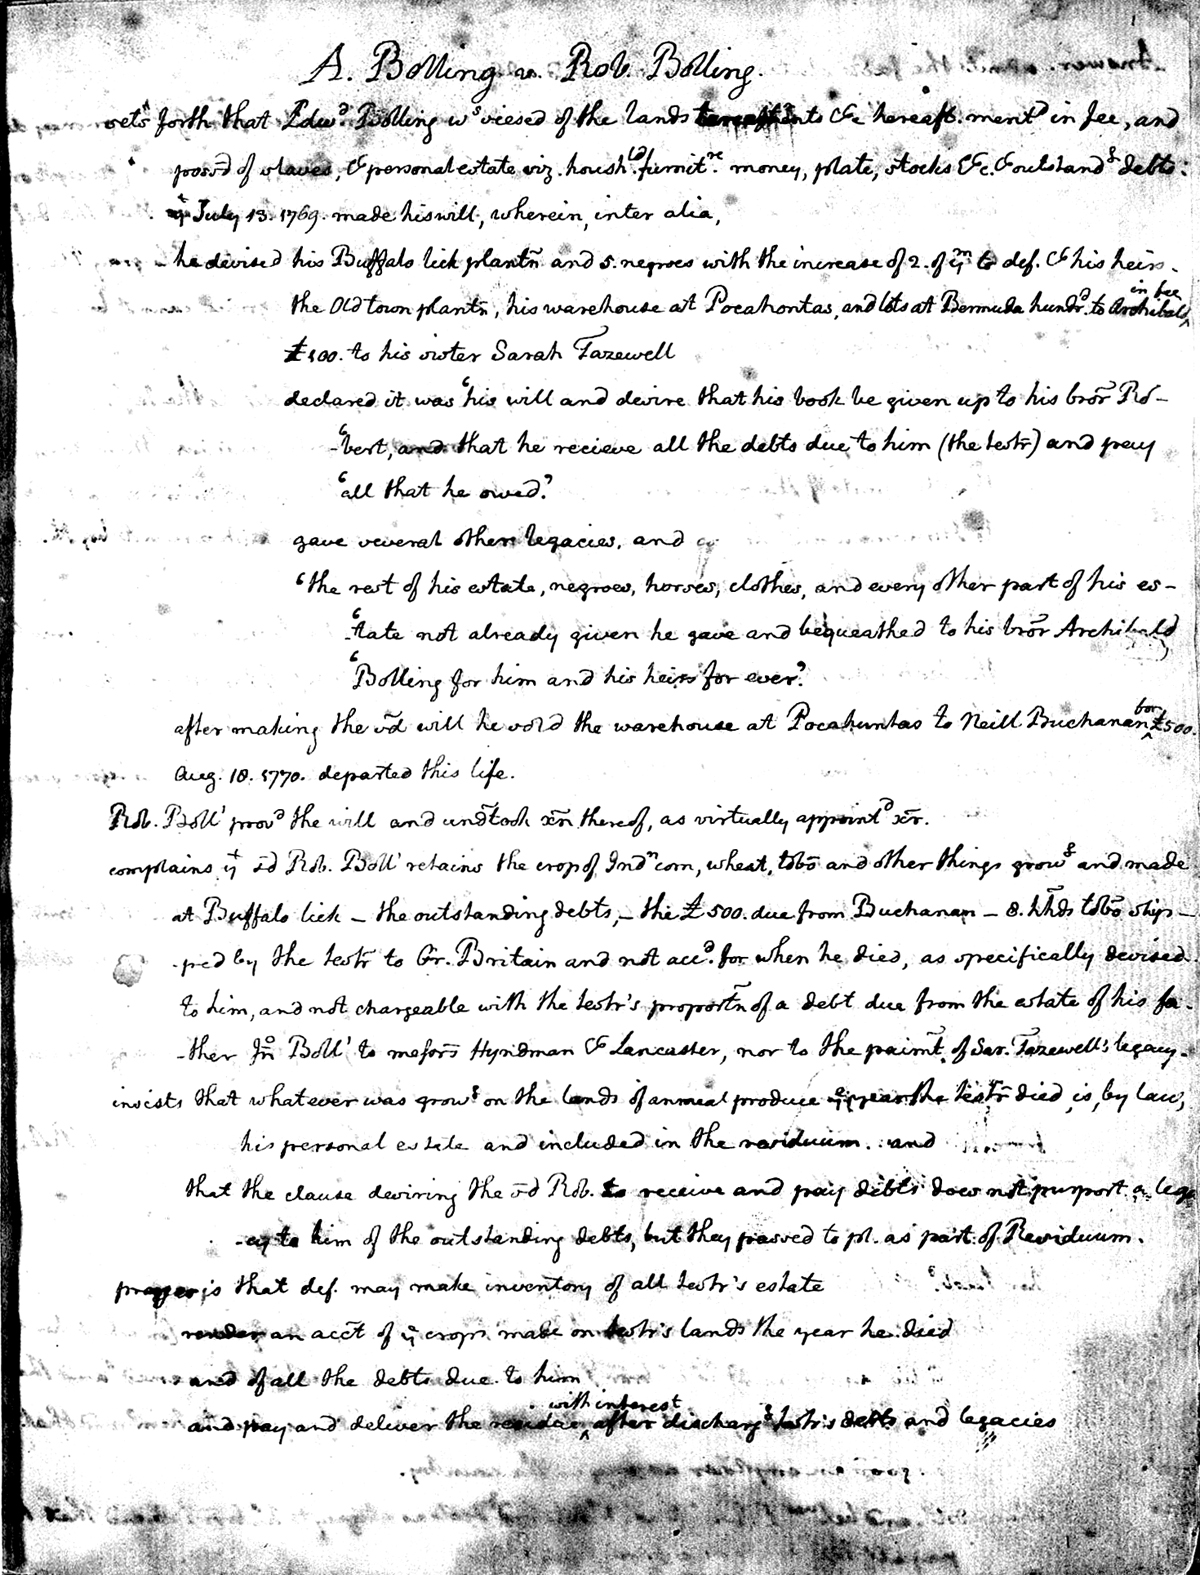 A. Bolling v. Rob. Bolling.
sets forth that Edwd. Bolling ws seised of the lands tenements &c hereaft. mentd in fee, and
possd of slaves, & personal estate viz. houshld. furnitre. money, plate, stocks &c. & outstandg debts:
yt July 13. 1769. made his will, wherein, inter alia,
he devised his Buffalo lick plantn and 5. negroes with the increase of 2. of ym to def. & his heirs.
in fee
the Old town plantn, his warehouse at Pocahontas, and lots at Bermuda hundd. to Archibald ^
£500. to his sister Sarah Tazewell
declared it was 'his will and desire that his book be given up to his bror Ro-
'-bert, and that he recieve all the debts due to him (the testr) and pay
'all that he owed.'
gave several other legacies, and
'the rest of his estate, negroes, horses, clothes, and every other part of his es-
'-tate not already given he gave and bequeathed to his bror Archibald
'Bolling for him and his heirs for ever.'
for
after making the sd will he sold the warehouse at Pocahuntas to Neill Buchanan ^ £500.
Aug. 10. 1770. departed this life.
Rob. Boll' provd the will and undtook xn thereof, as virtually appointd xr.
complains yt sd Rob. Boll' retains the crop of Indn corn, wheat, tobo and other things growg and made
at Buffalo lick – the outstanding debts, – the £500. due from Buchanan – 8. hhds tobo ship-
-ped by the testr to Gr. Britain and not accd. for when he died, as specifically devised
to him, and not chargeable with the testr's proportn of a debt due from the estate of his fa-
-ther Jno Boll' to messrs Hyndman & Lancaster, nor to the paimt. of Sar. Tazewell's legacy.
insists that whatever was growg on the lands of annual produce ye year the testr died, is, by law,
his personal estate and included in the residuum. and
that the clause desiring the sd Rob. to receive and pay debts does not purport a lega
-cy to him of the outstanding debts, but they passed to pl. as part of Residuum.
prayer is that def. may make inventory of all testr's estate
render an acct of ye crops made on testr's lands the year he died
and of all the debts due to him
with interest
and pay and deliver the residue ^ after dischargg testr's debts and legacies